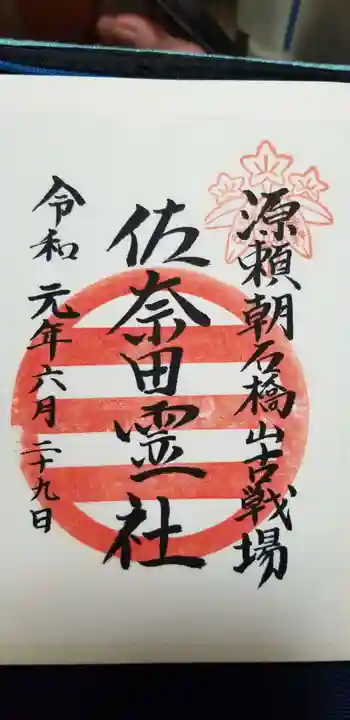 源頼朝石橋山古戦場
佐奈田霊社
令和元年六月二十九日